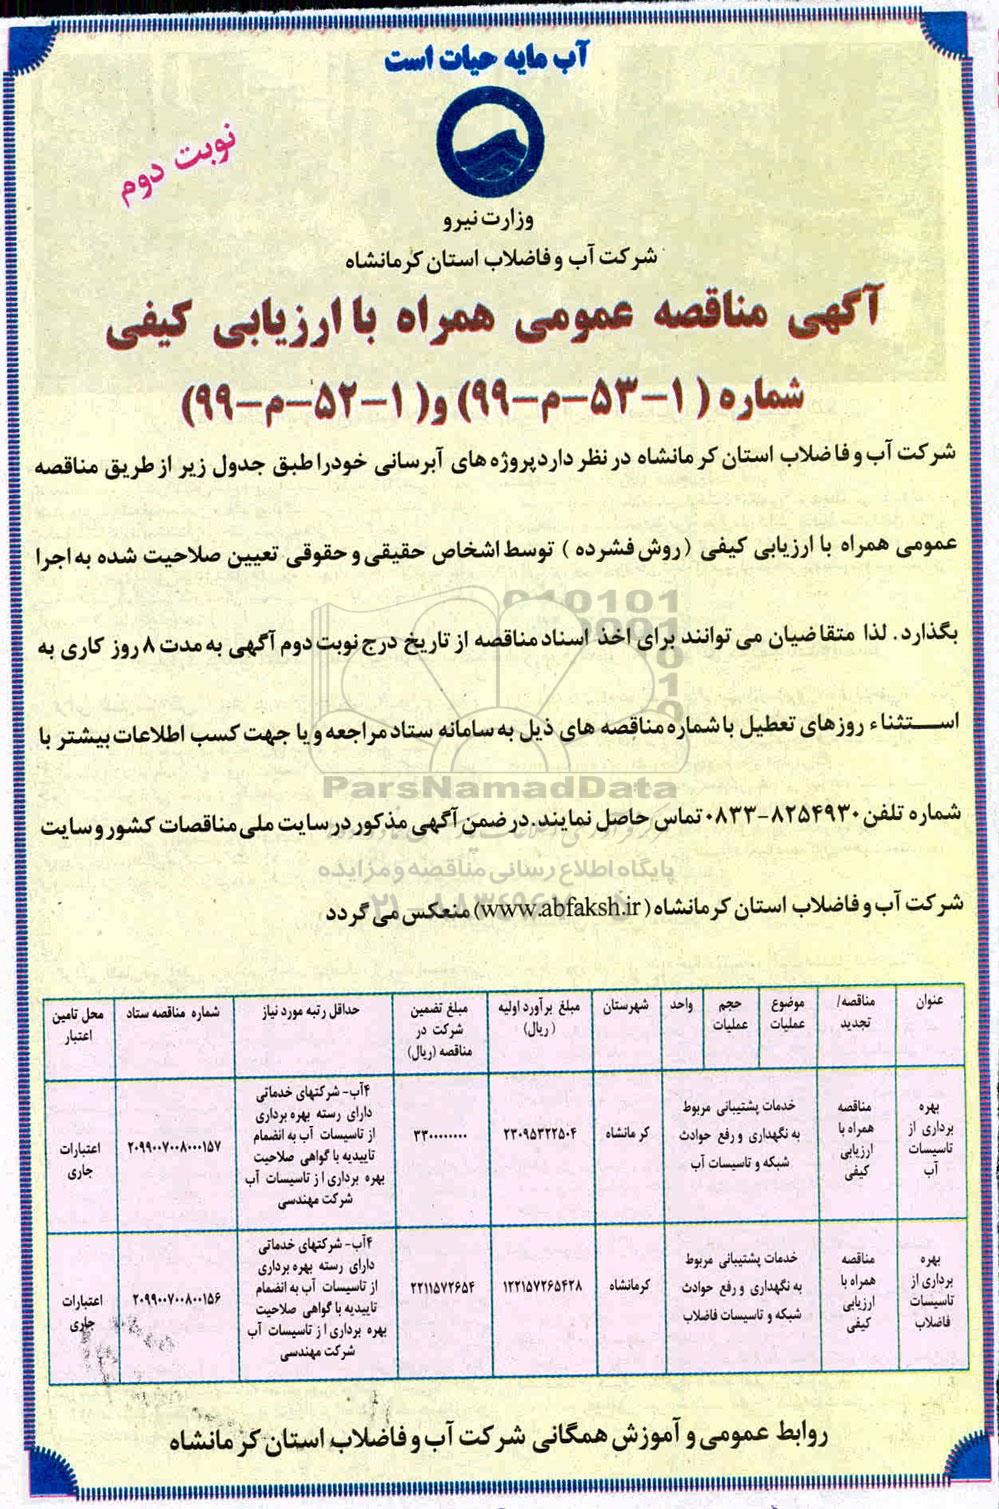 آب مایه حیات است
نوبت دوم
وزارت نیرو
شرکت آب و فاضلاب استان کرمانشاه
آگهی مناقصه عمومی همراه با ارزیابی کیفی
شماره (۱-۵۳-م-۹۹) و (۱-۵۲-م-۹۹)
شرکت آب و فاضلاب استان کرمانشاه در نظر دارد پروژه های آبرسانی خود را طبق جدول زیر از طریق مناقصه
عمومی همراه با ارزیابی کیفی (روش فشرده) توسط اشخاص حقیقی و حقوقی تعیین صلاحیت شده به اجرا
بگذارد. لذا متقاضیان می توانند برای اخذ اسناد مناقصه از تاریخ درج نوبت دوم آگهی به مدت ۸ روز کاری به
استثناء روزهای تعطیل با شماره مناقصه های ذیل به سامانه ستاد مراجعه و یا جهت کسب اطلاعات بیشتر با
شماره تلفن ۸۲۵۴۹۳۰-۰۸۳۳ تماس حاصل نمایند. در ضمن آگهی مذکور در سایت ملی مناقصات کشور و سایت
شرکت آب و فاضلاب استان کرمانشاه (www.abfaksh.ir) منعکس می گردد
ParsNamadData
پایگاه اطلاع رسانی مناقصه و مزایده
عنوان | مناقصه/ تجدید | موضوع عملیات | حجم عملیات | واحد | شهرستان | مبلغ برآورد اولیه (ریال) | مبلغ تضمین شرکت در مناقصه (ریال) | حداقل رتبه مورد نیاز | شماره مناقصه ستاد | محل تامین اعتبار
بهره برداری از تاسیسات آب | مناقصه همراه با ارزیابی کیفی | خدمات پشتیبانی مربوط به نگهداری و رفع حوادث شبکه و تاسیسات آب | کرمانشاه | ۲۳۰۹۵۳۲۲۵۰۴ | ۳۳۰۰۰۰۰۰۰۰ | ۴آب- شرکتهای خدماتی دارای رسته بهره برداری از تاسیسات آب به انضمام تاییدیه یا گواهی صلاحیت بهره برداری از تاسیسات آب شرکت مهندسی | ۲۰۹۹۰۰۷۰۰۸۰۰۰۱۵۷ | اعتبارات جاری
بهره برداری از تاسیسات فاضلاب | مناقصه همراه با ارزیابی کیفی | خدمات پشتیبانی مربوط به نگهداری و رفع حوادث شبکه و تاسیسات فاضلاب | کرمانشاه | ۱۲۲۱۵۷۲۶۵۴۲۸ | ۲۲۱۱۵۷۲۶۵۴ | ۴آب- شرکتهای خدماتی دارای رسته بهره برداری از تاسیسات آب به انضمام تاییدیه یا گواهی صلاحیت بهره برداری از تاسیسات آب شرکت مهندسی | ۲۰۹۹۰۰۷۰۰۸۰۰۰۱۵۶ | اعتبارات جاری
روابط عمومی و آموزش همگانی شرکت آب و فاضلاب استان کرمانشاه